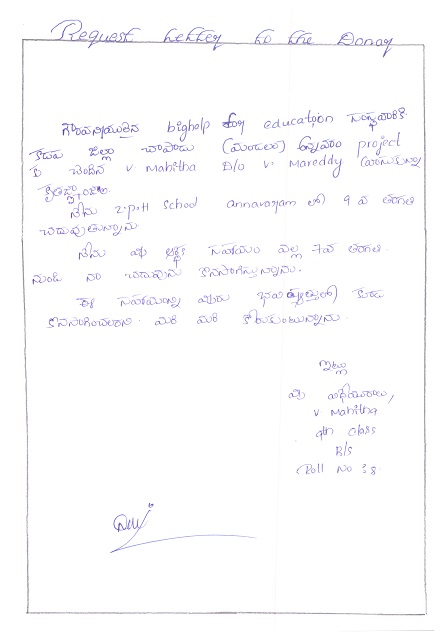 Request Letter to the Donar
గౌరవనీయులైన bighelp for education సంస్థవారికి
కడప జిల్లా చాపాడు (మండలం) అన్నవరం project
కు చెందిన V Mahitha D/o V. Mareddy
కృతజ్ఞతాంజలి.
నేను Z.P.H School annavaram లో 9 వ తరగతి
చదువుతున్నాను
నేను మీ ఆర్థిక సహాయం వల్ల 7వ తరగతి
నుండి నా చదువును కొనసాగిస్తున్నాను.
ఈ సహాయాన్ని మీరు భవిష్యత్తులో కూడా
కొనసాగించాలని మరి మరి కోరుకుంటున్నాను.
ఇట్లు
మీ విధేయురాలు,
V Mahitha
9th Class
B/S
Roll No 38